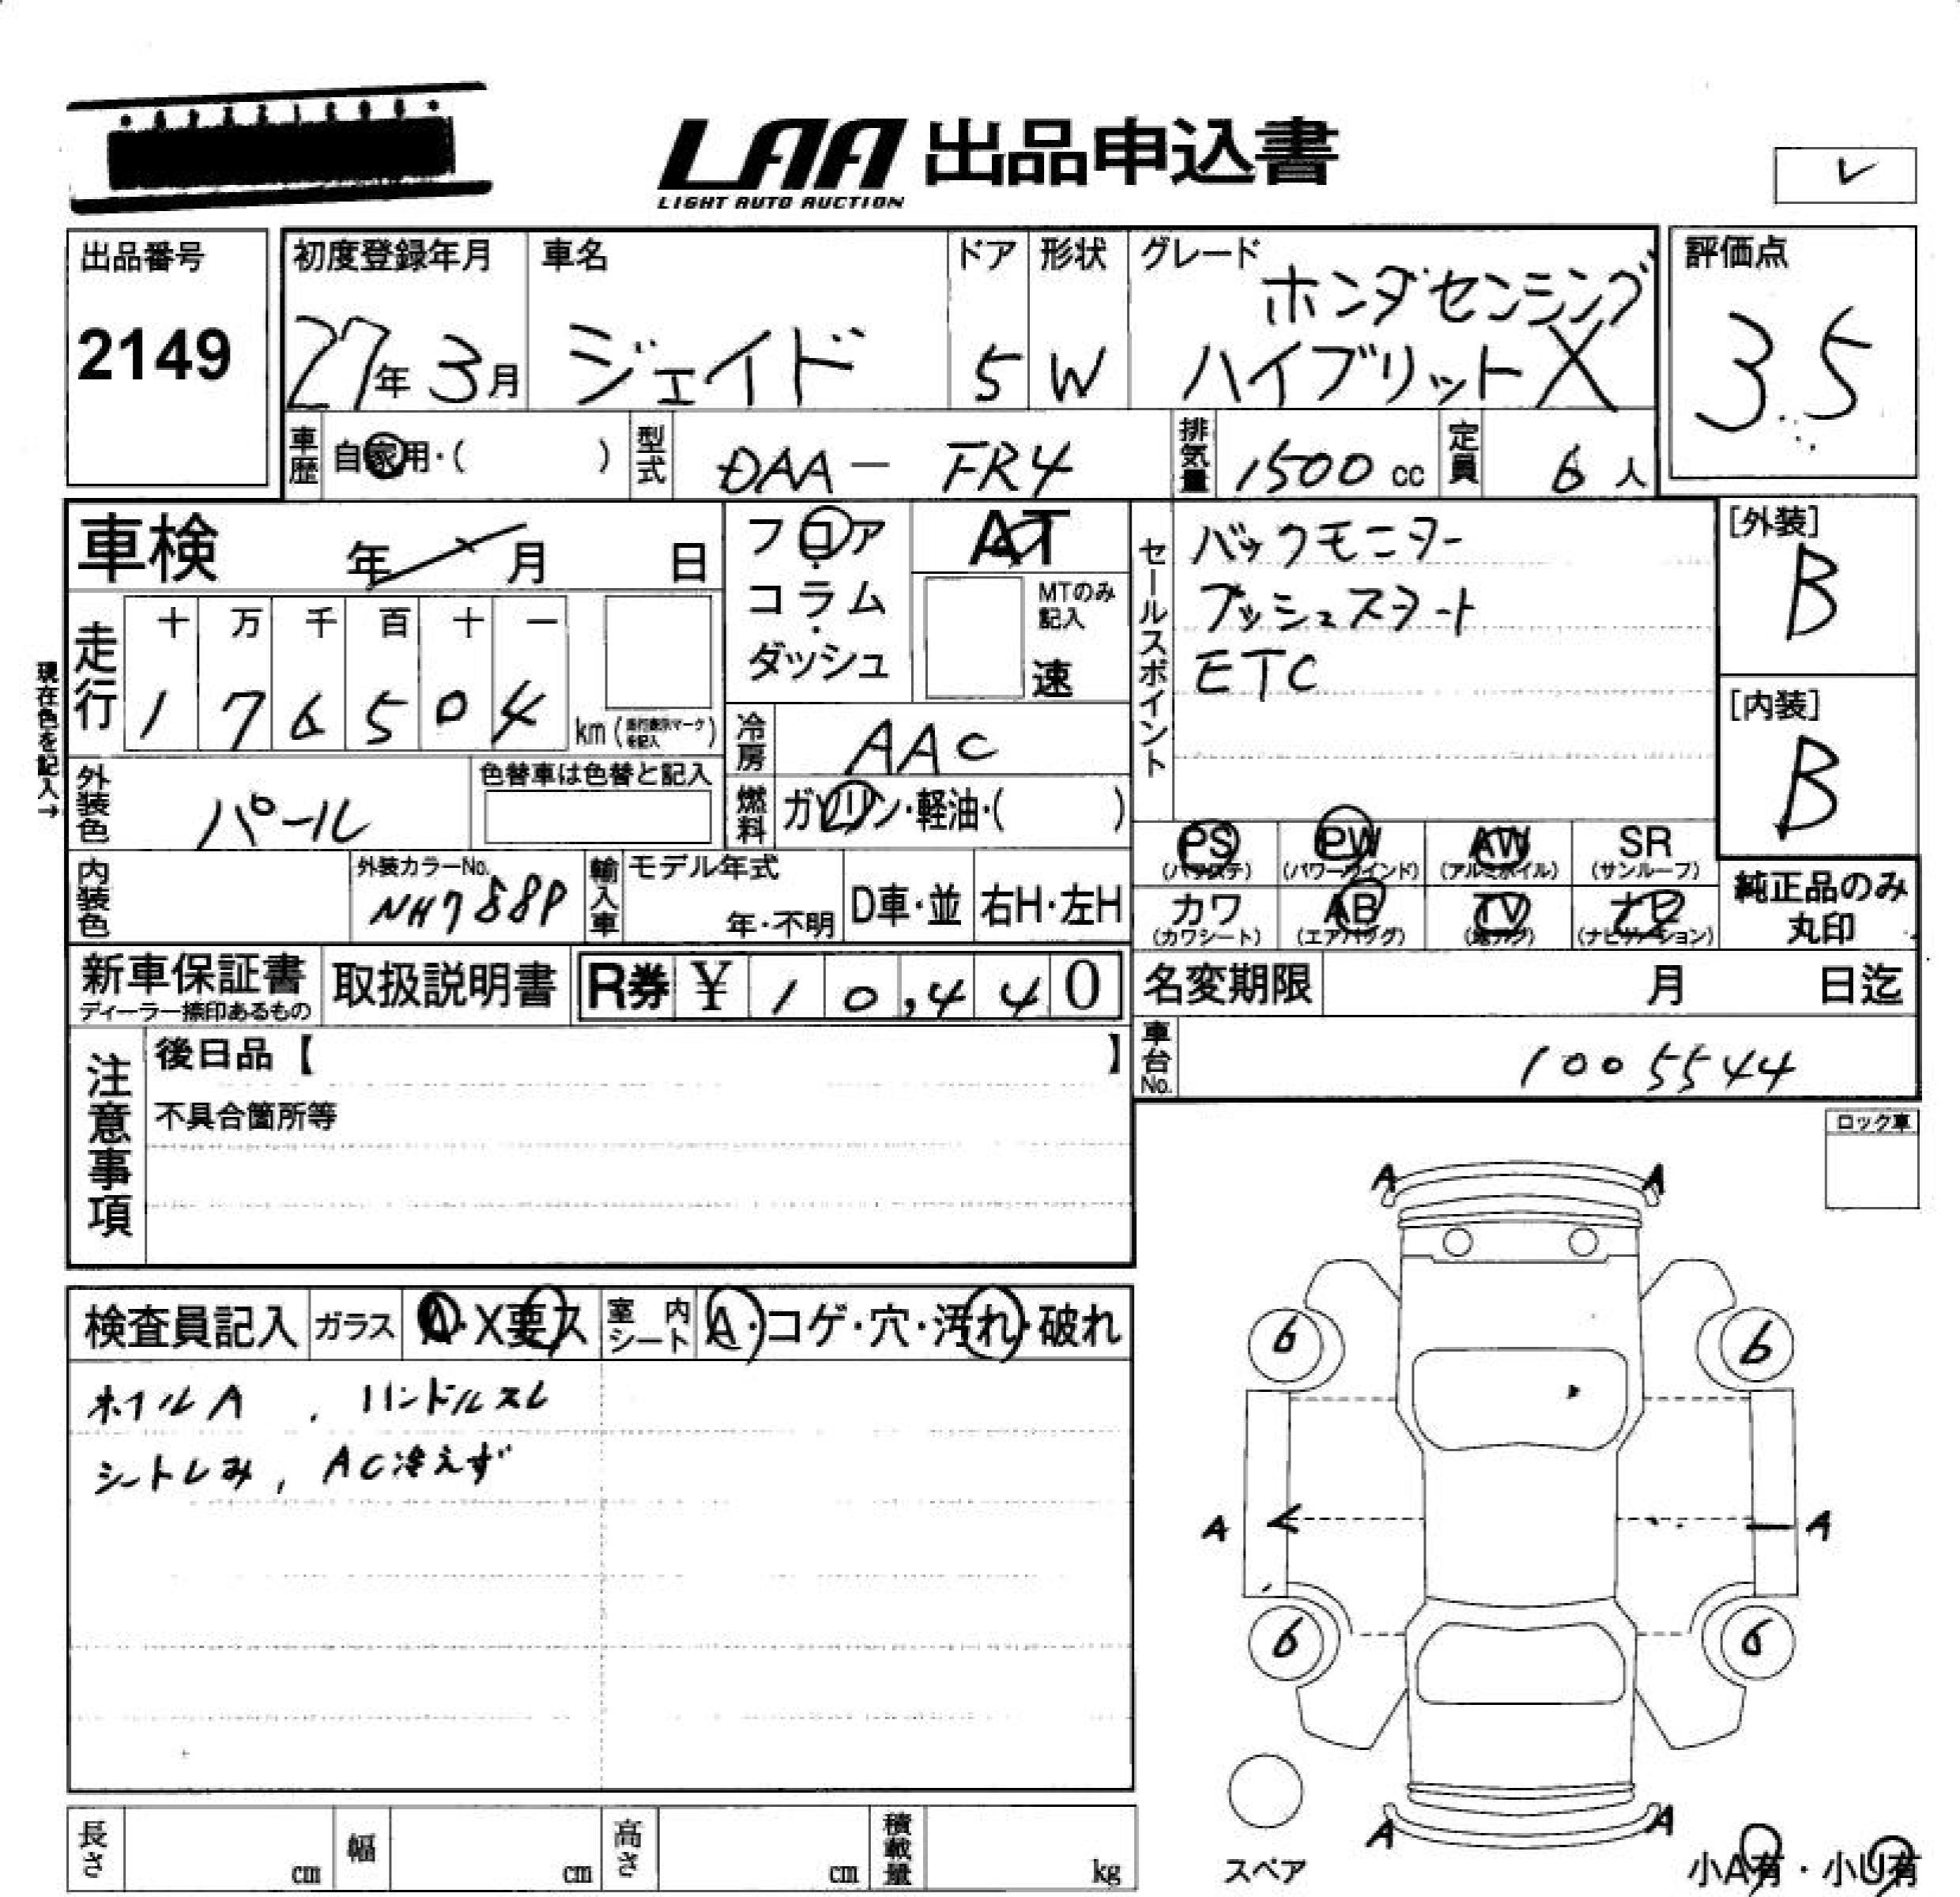 LAA 出品申込書
LIGHT AUTO AUCTION
レ
出品番号
2149
初度登録年月
27年3月
車名
ジェイド
ドア
5
形状
W
グレード
ホンダセンシング
ハイブリットX
評価点
3.5
車歴
自家用・( )
型式
DAA-FR4
排気量
1500cc
定員
6人
車検 年 月 日
フロア
・
コラム
・
ダッシュ
AT
MTのみ
記入
速
セールスポイント
バックモニター
プッシュスタート
ETC
[外装]
B
[内装]
B
現在色を記入→
走行
十 万 千 百 十 一
1 7 6 5 0 4
km( )
冷房
AAC
外装色
パール
色替車は色替と記入
燃料
ガソリン・軽油・( )
PS
(パワステ)
PW
(パワーウインド)
AW
(アルミホイル)
SR
(サンルーフ)
内装色
外装カラーNo.
NH788P
輸入車
モデル年式
年・不明
D車・並
右H・左H
カワ
(カワシート)
AB
(エアバッグ)
TV
ナビ
(ナビゲーション)
純正品のみ
丸印
新車保証書
ディーラー捺印あるもの
取扱説明書
R券 ¥ 10,440
名変期限 月 日迄
注意事項
後日品【 】
不具合箇所等
車台No.
1005544
ロック車
検査員記入
ガラス
A・X要ス
室内シート
A・コゲ・穴・汚れ・破れ
ホイルA , ハンドルスレ
シートしみ, AC冷えず
A A
6 6
A A
6 6
A A
スペア
小A有・小U有
長さ cm
幅 cm
高さ cm
積載量 kg